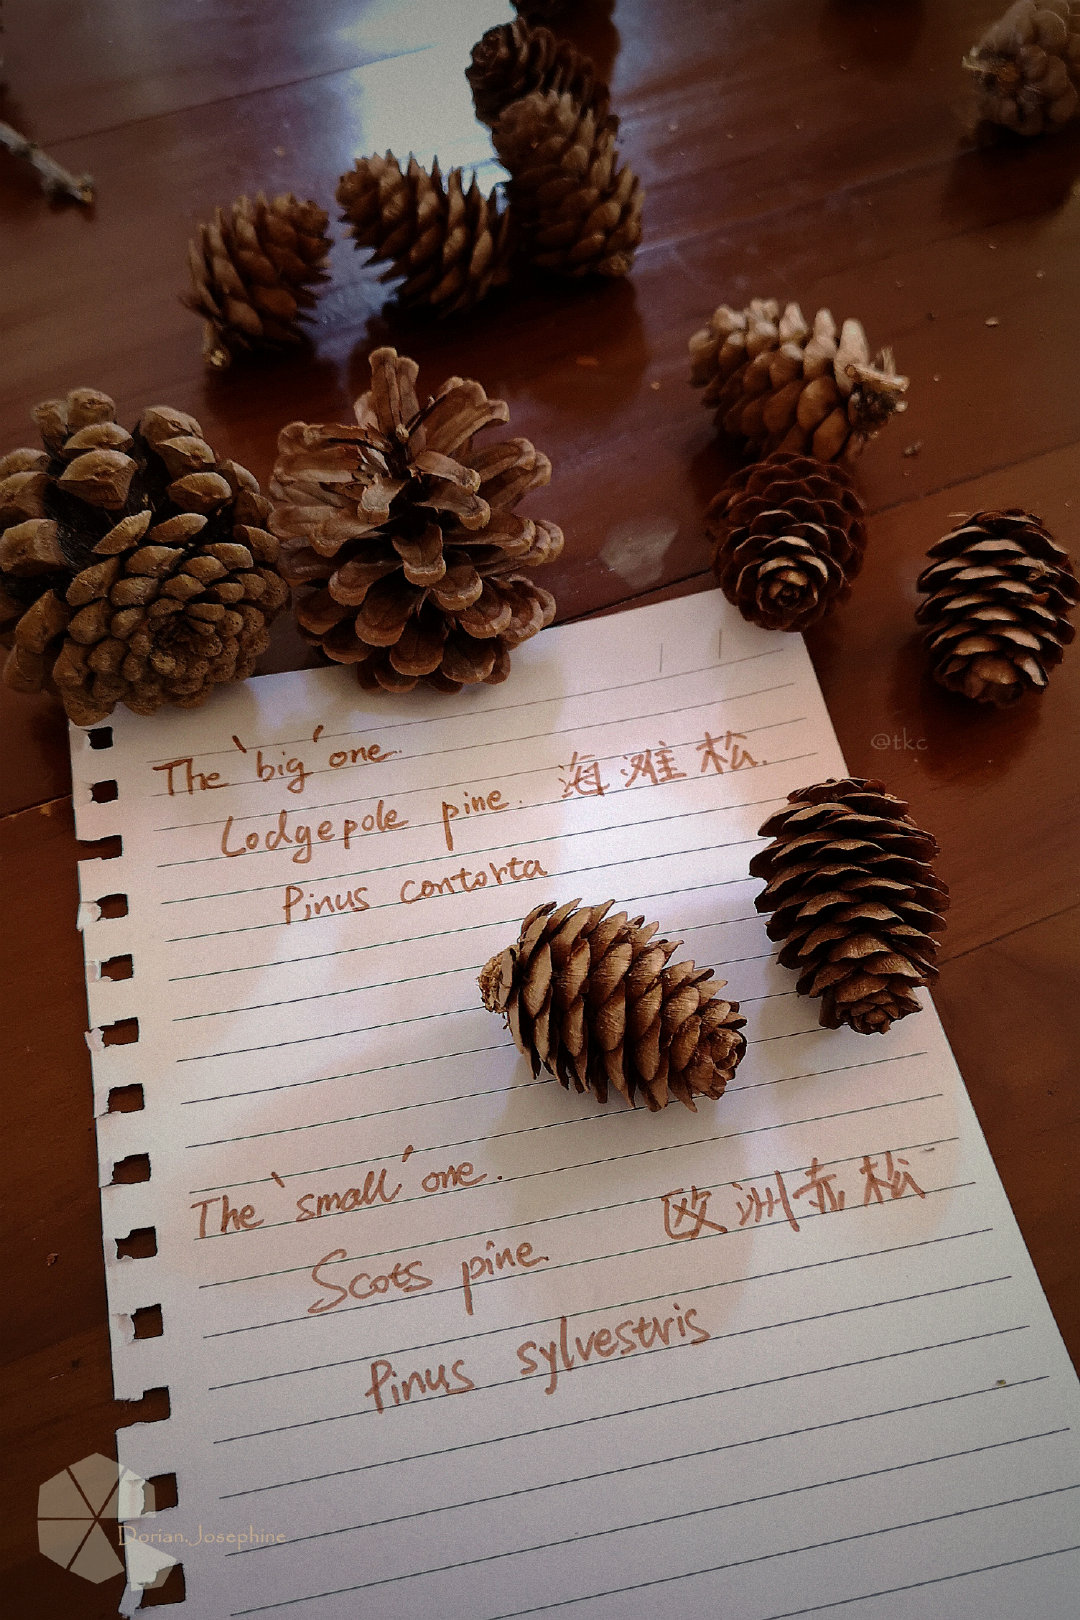 The 'big' one.
Lodgepole pine. 海滩松.
Pinus contorta
The 'small' one.
欧洲赤松
Scots pine.
Pinus sylvestris
@tkc
Dorian.Josephine